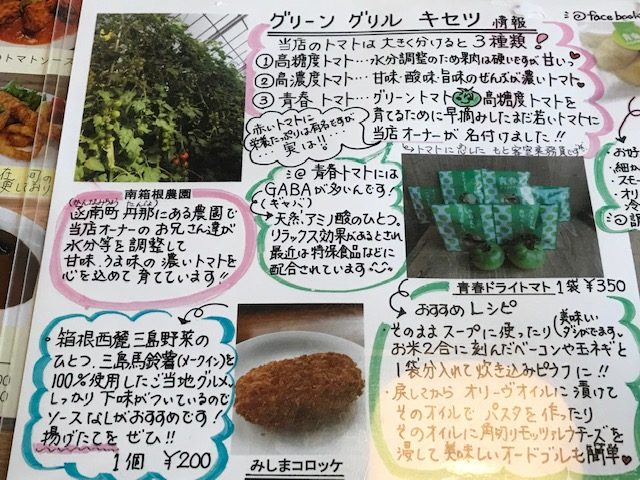 グリーン グリル キセツ 情報
@facebook
当店のトマトは大きく分けると3種類！
①高糖度トマト…水分調整のため果肉は硬いですが甘いっ
②高濃度トマト…甘味・酸味・旨味のぜんぶが濃いトマト
③青春トマト…グリーントマト 高糖度トマトを
育てるために早摘みしたまだ若いトマトに
当店オーナーが名付けました!!
赤いトマトに
栄養たっぷりは有名ですが
実は!!
@青春トマトには
GABAが多いんです！
(ギャバ)
天然アミノ酸のひとつ。
リラックス効果があるとされ
最近は特保食品などに
配合されています
南箱根農園
函南町丹那にある農園で
当店オーナーのお兄さん達が
水分等を調整して
甘味、うま味の濃いトマトを
心を込めて育てています!!
青春ドライトマト 1袋 ¥350
おすすめレシピ
そのままスープに使ったり
美味しい
ダシがでます。
お米2合に刻んだベーコンや玉ネギと
1袋分入れて炊き込みピラフに!!
・戻してからオリーヴオイルに漬けて
そのオイルでパスタを作ったり
そのオイルに角切りモッツァレラチーズを
浸して美味しいオードブルも簡単
・箱根西麓三島野菜の
ひとつ、三島馬鈴薯(メークイン)を
100%使用したご当地グルメ。
しっかり下味がついているので
ソースなしがおすすめです！
揚げたてをぜひ!!
1個 ¥200
みしまコロッケ
トマトソース